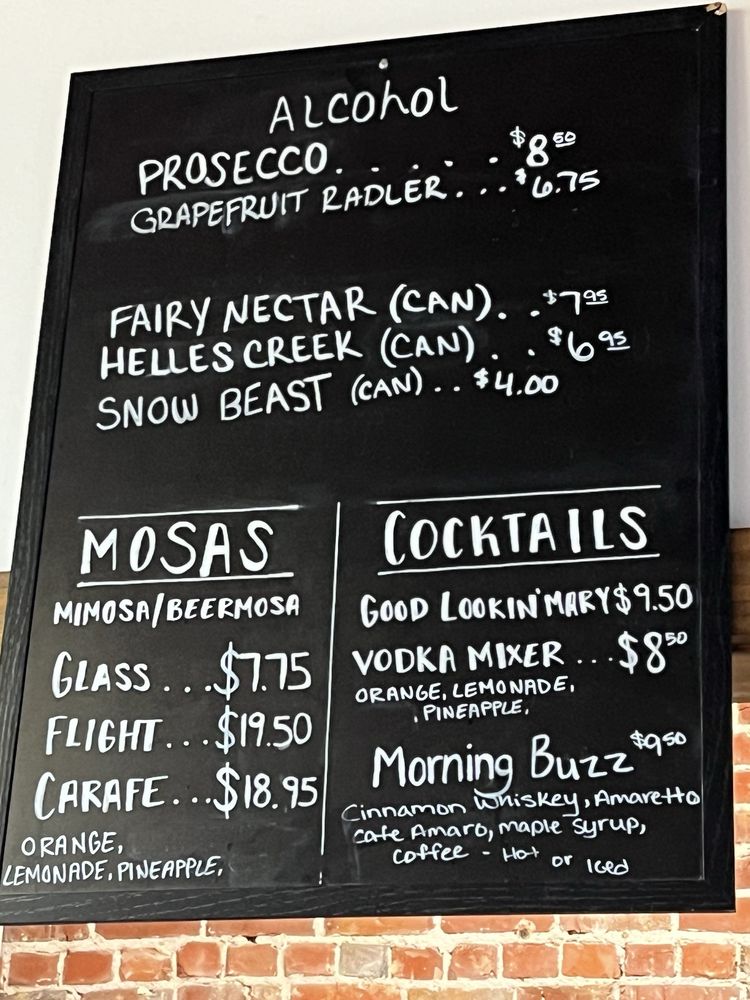 ALcohol
PROSECCO. . . . . . $8 50
GRAPEFRUIT RADLER. . . $6.75
FAIRY NECTAR (CAN). . $7 95
HELLES CREEK (CAN) . . $6 95
SNOW BEAST (CAN) . . $4.00
MOSAS
MIMOSA/BEERMOSA
GLASS ...$7.75
FLIGHT...$19.50
CARAFE...$18.95
ORANGE,
LEMONADE, PINEAPPLE,
COCKTAILS
GOOD LOOKIN' MARY $9.50
VODKA MIXER ...$8 50
ORANGE, LEMONADE,
, PINEAPPLE,
Morning Buzz $9 50
Cinnamon Whiskey, Amaretto
cafe Amaro, maple syrup,
coffee - Hot or Iced